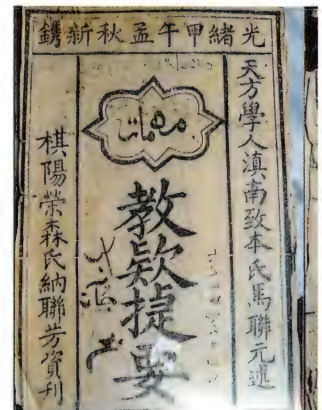 光緒甲午孟秋新鐫
天方學人滇南致本氏馬聯元述
مهمات
教欵捷要
棋陽榮森氏納聯芳資刋